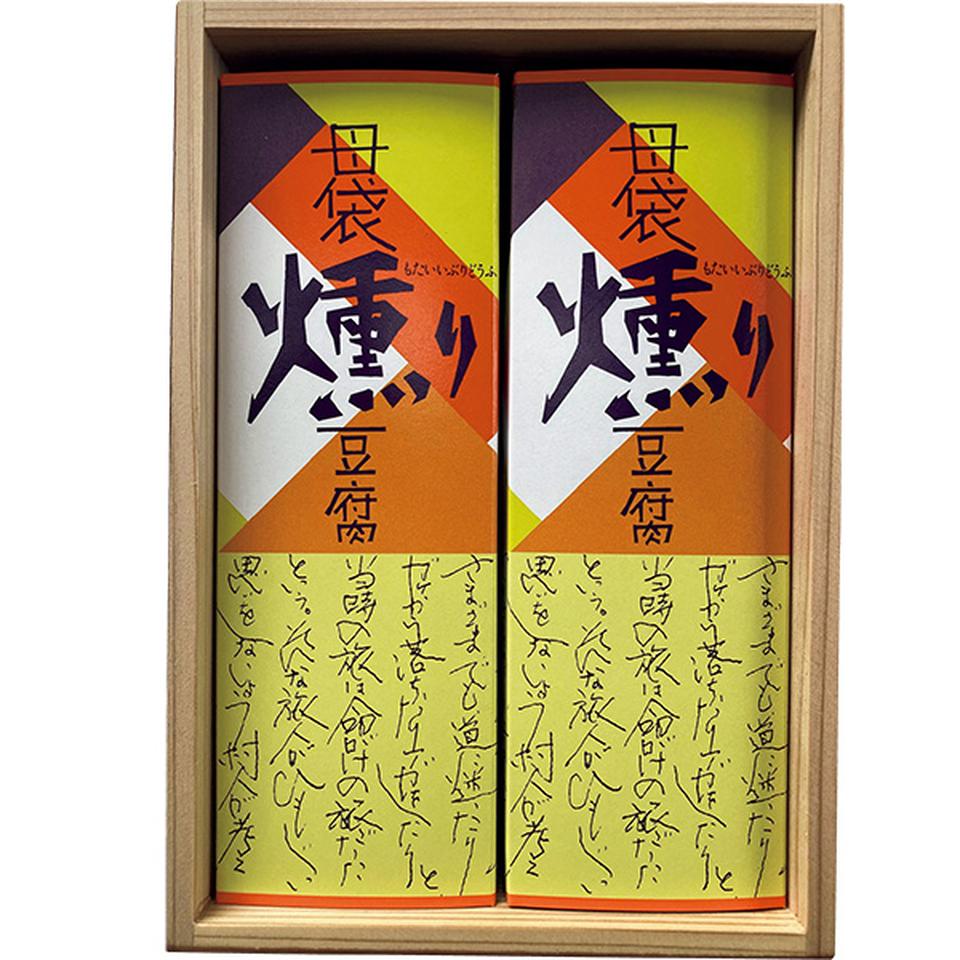 母袋
燻り
もたいいぶりどうふ
豆腐
さまざまでも道に迷ったり
ガケから落ちたり
したりと
当時の旅は命がけの旅だった
という。そんな旅人がひもじい
思いをしないよう村人が考え
母袋
燻り
もたいいぶりどうふ
豆腐
さまざまでも道に迷ったり
ガケから落ちたり
したりと
当時の旅は命がけの旅だった
という。そんな旅人がひもじい
思いをしないよう村人が考え